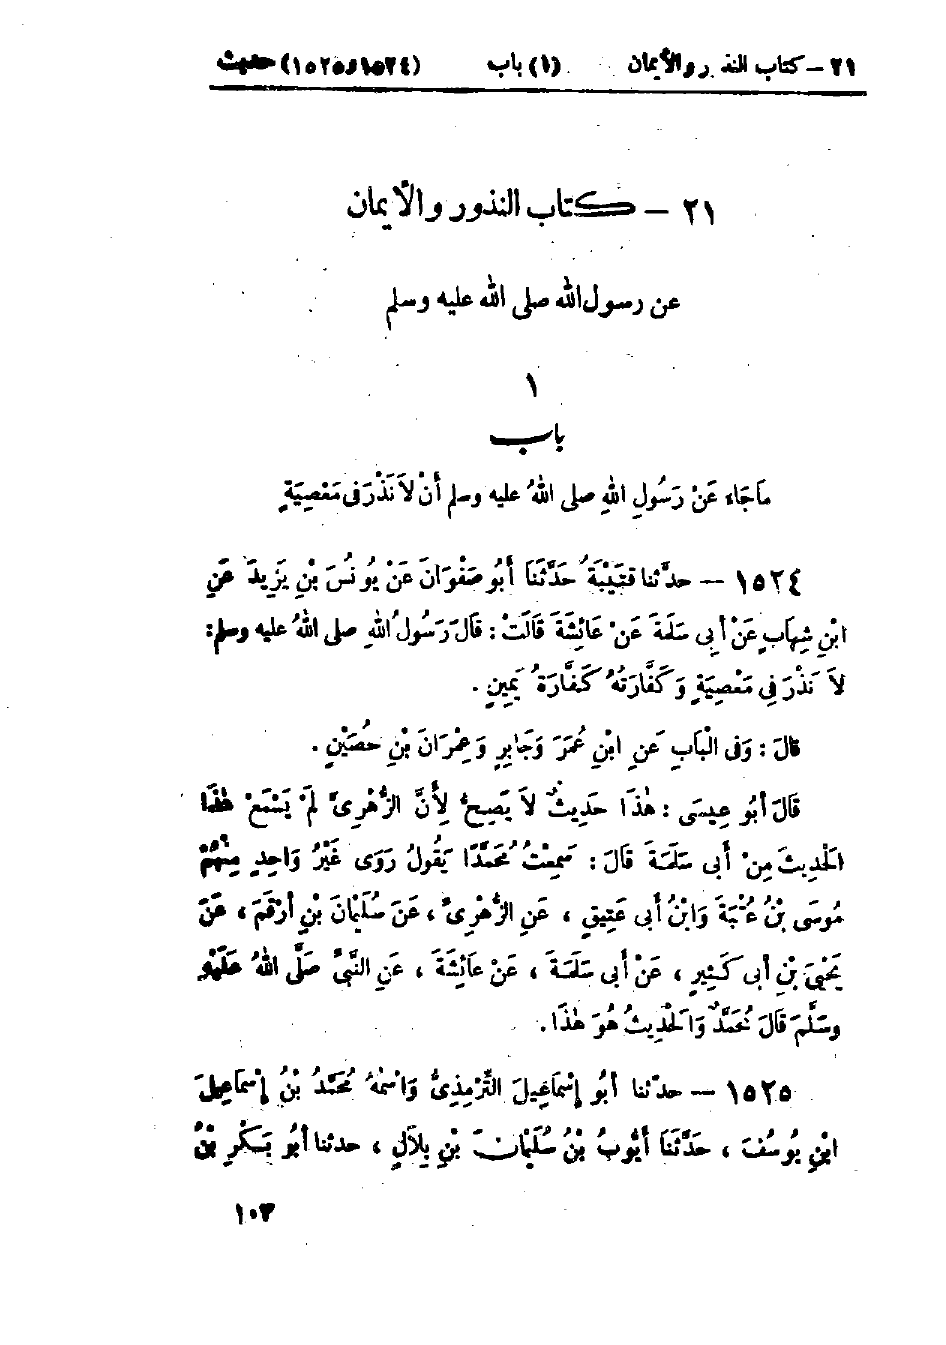 ٢١ – كتاب النذور والأيمان (١) باب (١٥٢٤ و١٥٢٥) حديث
٢١ – كتاب النذور والأيمان
عن رسول الله صلى الله عليه وسلم
١
باب
مَاجَاء عَنْ رَسُولِ اللهِ صلى اللهُ عليه وسلم أَنْ لاَ نَذْرَ فى مَعْصِيَةٍ
١٥٢٤ – حدّثنا قتَيْبَةُ حَدَّثَنَا أَبُو صَفْوَانَ عَنْ يُونُسَ بْنِ يَزِيدَ عَنِ
ابْنِ شِهَابٍ عَنْ أَبِى سَلَمَةَ عَنْ عَائِشَةَ قَالَتْ : قَالَ رَسُولُ اللهِ صلى اللهُ عليه وسلم:
لاَ نَذْرَ فِى مَعْصِيَةٍ وَكَفَّارَتُهُ كَفَّارَةُ يَمِينٍ .
قالَ : وَفى الْبَابِ عَنِ ابْنِ عُمَرَ وَجَابِرٍ وَعِمْرَانَ بْنِ حُصَيْنٍ .
قَالَ أَبُو عِيسَى : هٰذَا حَدِيثٌ لاَ يَصِحُّ لِأَنَّ الزُّهْرِىَّ لَمْ يَسْمَعْ هٰذَا
الْحَدِيثَ مِنْ أَبى سَلَمَةَ قَالَ : سَمِعْتُ مُحَمَّدًا يَقُولُ رَوَى غَيْرُ وَاحِدٍ مِنْهُمْ
مُوسَى بْنُ عُقْبَةَ وَابْنُ أَبى عَتِيقٍ ، عَنِ الزُّهْرِىِّ ، عَنَ سُلَيْمَانَ بْنِ أَرْقَمَ ، عَنْ
يَحْيَى بْنِ أَبى كَثِيرٍ ، عَنْ أَبى سَلَمَةَ ، عَنْ عَائِشَةَ ، عَنِ النَّبِىِّ صَلَّى اللهُ عَلَيْهِ
وسَلَّمَ قَالَ مُحَمَّدٌ وَالْحَدِيثُ هُوَ هٰذَا .
١٥٢٥ – حدّثنا أَبُو إِسْمَاعِيلَ التِّرْمِذِىُّ وَاسْمُهُ مُحَمَّدُ بْنُ إِسْمَاعِيلَ
ابْنِ يُوسُفَ ، حَدَّثَنَا أَيُّوبُ بْنُ سُلَيْمَانَ بْنِ بِلاَلٍ ، حدثنا أَبُو بَكْرِ بْنُ
١٠٣